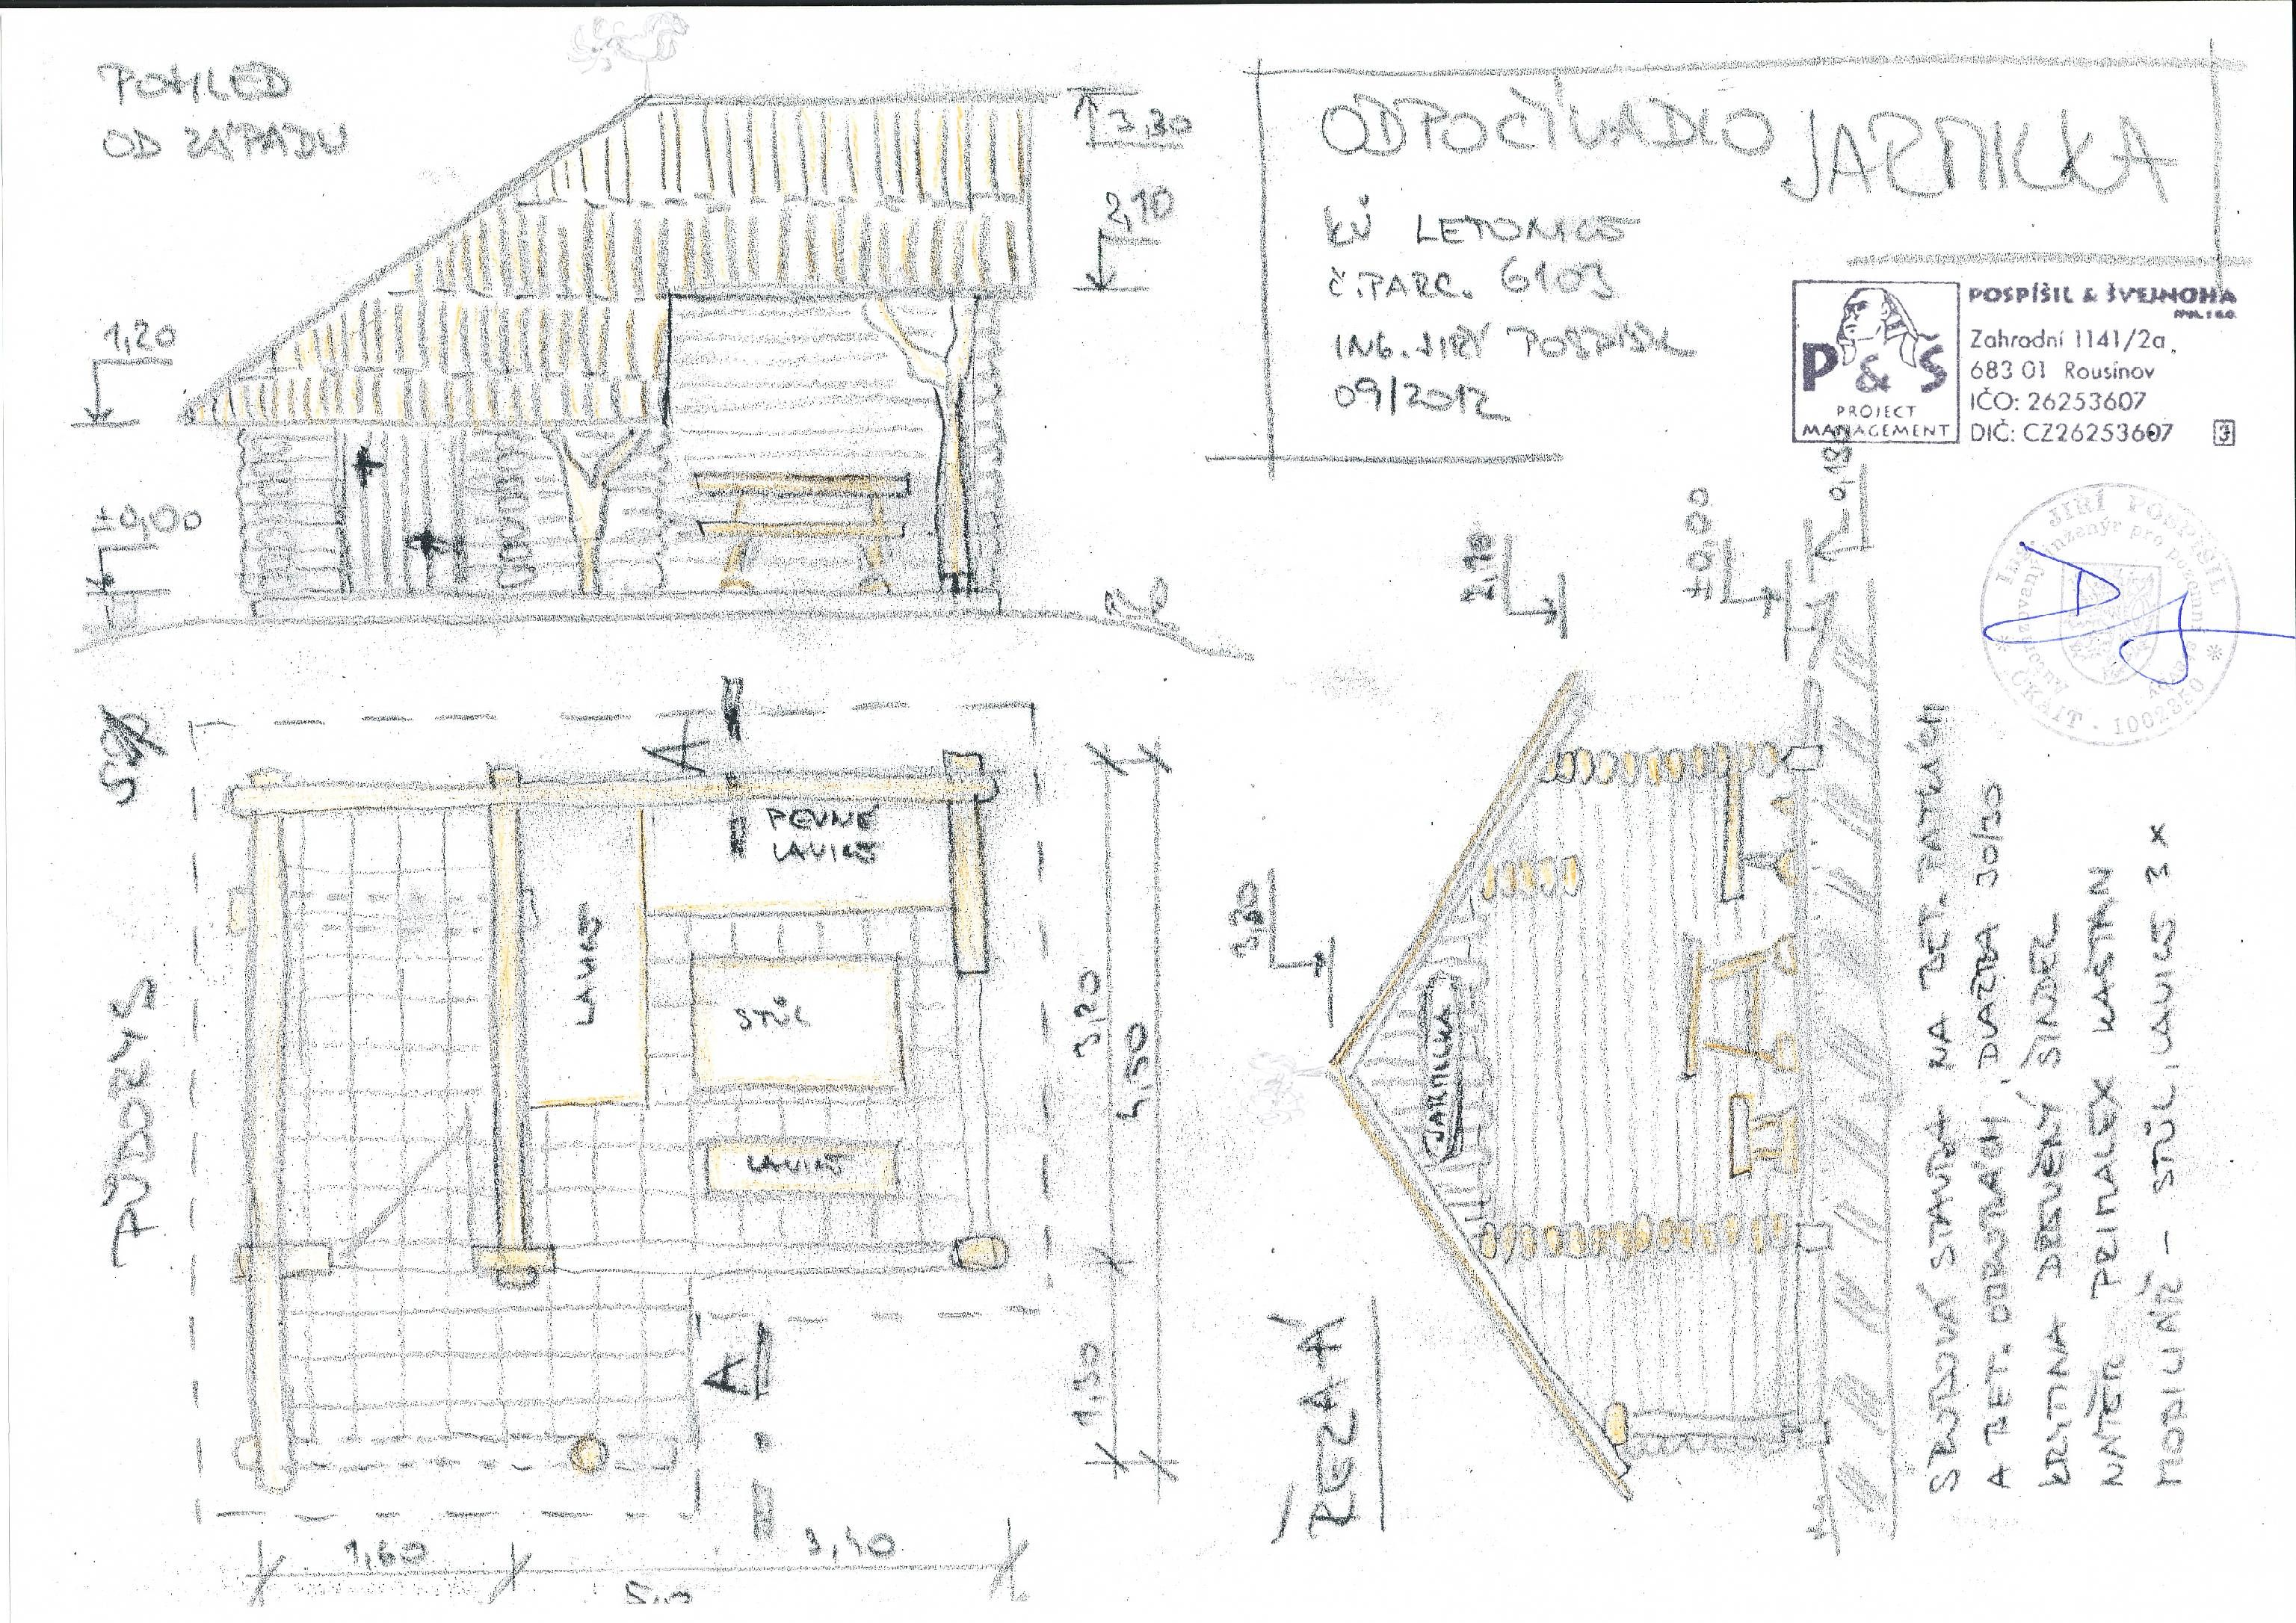 POHLED
OD ZÁPADU
3,30
2,10
1,20
±0,00
ODPOČÍVADLO JARMILKA
KÚ LETONICE
Č.PARC. 6103
ING. JIŘÍ POSPÍŠIL
09/2012
POSPÍŠIL & ŠVEJNOHA
Zahradní 1141/2a,
683 01 Rousínov
IČO: 26253607
DIČ: CZ26253607
3
P & S
PROJECT
MANAGEMENT
ING. JIŘÍ POSPÍŠIL
ČKAIT · 1002820
PŮDORYS
A
PEVNÉ
LAVICE
LAVICE
STŮL
LAVICE
A
3,20
4,50
1,30
1,60
3,40
5,0
2,10
±0,00
3,30
JARMILKA
ŘEZ A A
SRUBOVÁ STAVBA NA BET. PATKÁCH
A BET. OBRUBNÍCÍCH, DLAŽBA 30/30
KRYTINA DŘEVĚNÝ ŠINDEL
NÁTĚR PRIMALEX KAŠTAN
MOBILIÁŘ - STŮL, LAVICE 3 X